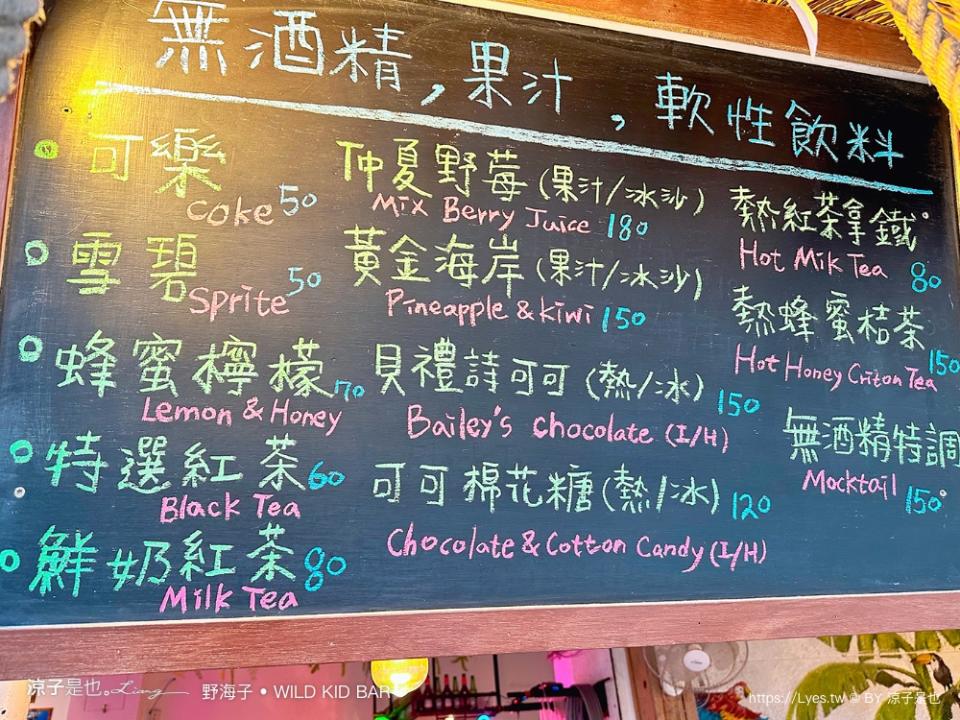 無酒精,果汁,軟性飲料
可樂
Coke 50
雪碧
Sprite 50
蜂蜜檸檬 170
Lemon & Honey
特選紅茶 60
Black Tea
鮮奶紅茶 80
Milk Tea
仲夏野莓(果汁/冰沙)
Mix Berry Juice 180
黃金海岸(果汁/冰沙)
Pineapple & kiwi 150
貝禮詩可可(熱/冰) 150
Bailey's chocolate (I/H)
可可棉花糖(熱/冰) 120
Chocolate & Cotton Candy (I/H)
熱紅茶拿鐵
Hot Mik Tea 80
熱蜂蜜桔茶 150
Hot Honey Criton Tea
無酒精特調
Mocktail 150
涼子是也。Liang 野海子 • WILD KID BAR
https://Lyes.tw @ BY 涼子是也